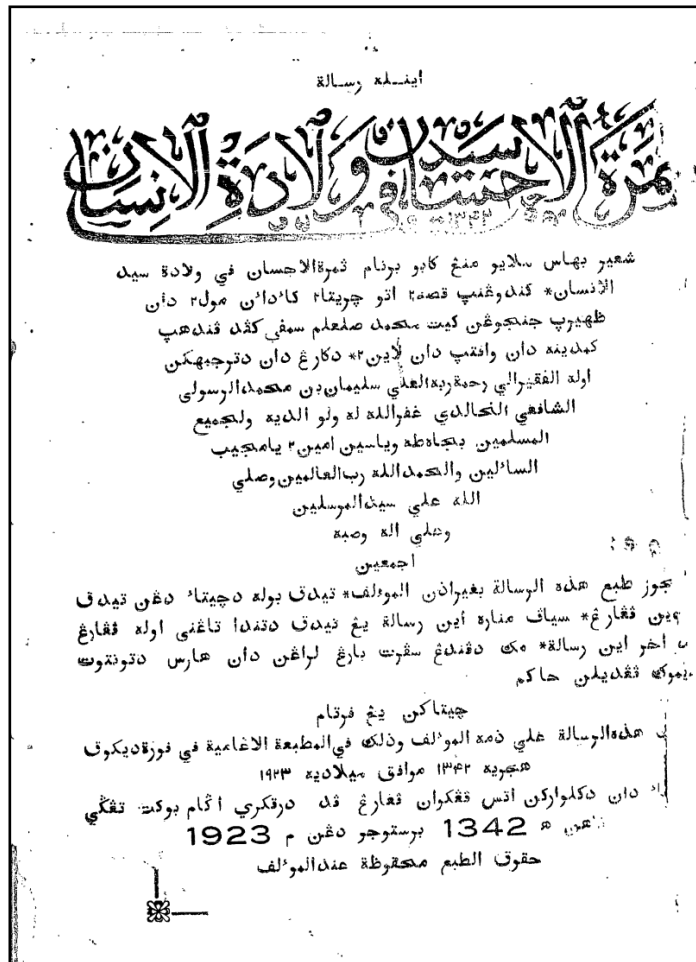 اينله رسالة
ثمرة الاحسان في ولادة سيد الانسان
١٣٤٢
شعير بهاس ملايو منڠ كابو برنام ثمرة الاحسان في ولادة سيد
الانسان* كندوڠنپ قصه٢ اتو چريتا٢ كادائن مول٢ دان
ظهيرڽ جنجوڠن كيت محمد صلعلم سمڤي كڤد ڤندهڽ
كمدينه دان وافتڽ دان لاين٢* دكارڠ دان دترجمهكن
اوله الفقير الي رحمة ربه العلي سليمان بن محمد الرسولى
الشافعي الخالدي غفر الله له ولو الديه ولجميع
المسلمين بجاه طه وياسين امين٢ يامجيب
السائلين والحمد الله رب العالمين وصلي
الله علي سيد المرسلين
وعلي اله وصبه
اجمعين
يجوز طبع هذه الرسالة بغير اذن الموءلف* تيدق بوله دچيتاك دڠن تيدق
ايزين ڤڠارڠ* سياڤ مناره اين رسالة يڠ تيدق دتندا تاڠني اوله ڤڠارڠ
اخر اين رسالة* مك دڤندڠ سڤرت بارڠ لراڠن دان هارس دتونتوت
ڤڠديلن حاكم
چيتاكن يڠ فرتام
هذه الرسالة علي ذمة الموءلف وذلك في المطبعة الاغامية في فوزديكوق
هجرية ١٣٤٢ موافق ميلادية ١٩٢٣
دان دكلواركن اتس تڠكوان ڤڠارڠ ڤد درڤكري اڬام بوكت تڠڬي
تاهن ه 1342 برستوجو دڠن م 1923
حقوق الطبع محفوظة عند الموءلف